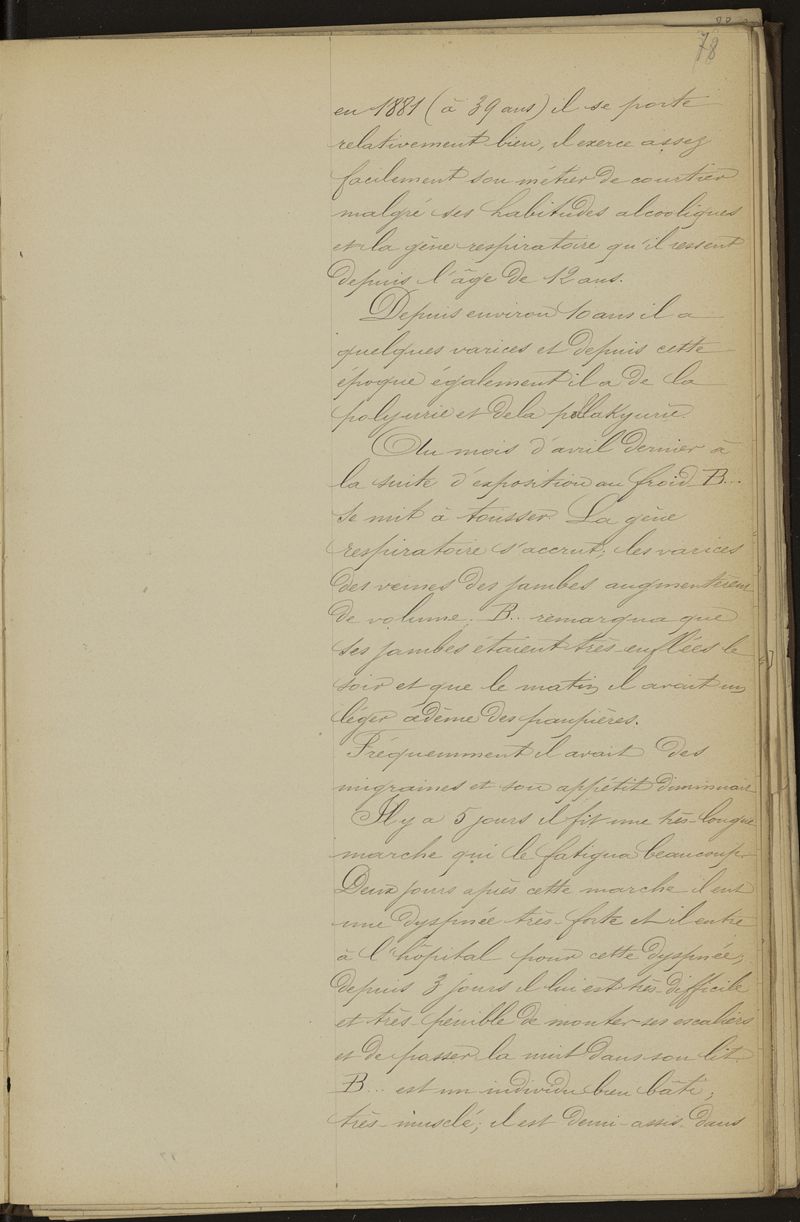 78
en 1881 (à 39 ans) il se porte
relativement bien, il exerce assez
facilement son métier de courtier
malgré ses habitudes alcooliques
et la gène respiratoire qu'il ressent
depuis l'âge de 12 ans.
Depuis environ 10 ans il a
quelques varices et depuis cette
époque également il a de la
polyurie et de la pollakyurie.
Au mois d'avril dernier à
la suite d'exposition au froid B...
se mit à tousser. La gène
respiratoire s'accrut; les varices
des veines des jambes augmentèrent
de volume. B... remarqua que
ses jambes étaient très-enflées le
soir et que le matin il avait un
léger œdème des paupières.
Fréquemment il avait des
migraines et son appétit diminuait
Il y a 5 jours il fit une très-longue
marche qui le fatigua beaucoup.
Deux jours après cette marche il eut
une dyspnée très-forte et il entre
à l'hôpital pour cette dyspnée;
depuis 3 jours il lui est très-difficile
et très-pénible de monter ses escaliers
et de passer la nuit dans son lit.
B... est un individu bien bâti,
très-musclé; il est demi-assis dans